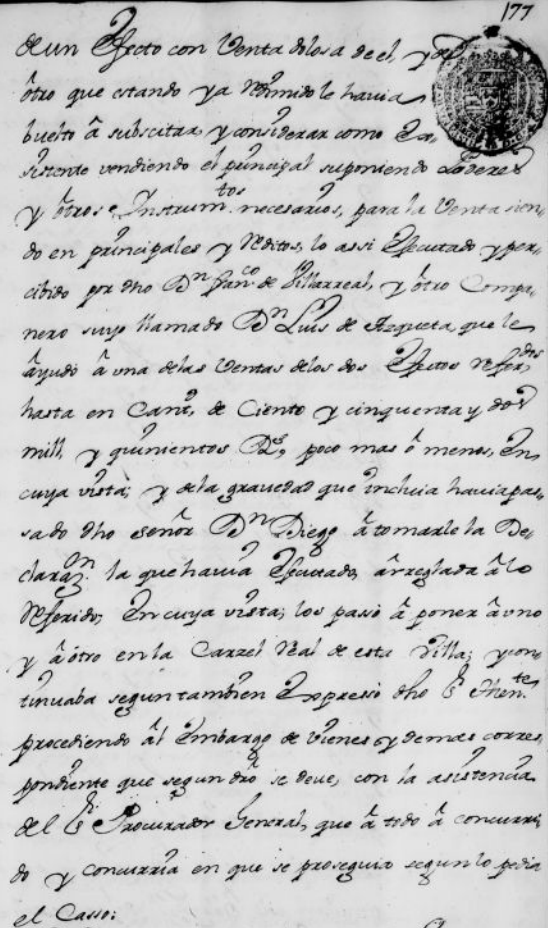 177
de un Efecto con Venta dolosa de el, y de
otro que estando ya redimido le havia
buelto â subscitar, y considerar como Exi-
sistente vendiendo el principal suponiendo Poderes
y ôtros Instrum.tos necesarios, para la Venta sien-
do en principales y reditos, lo assi Efecutado y per-
cibido por dho Dn. Franco. de Villarreal, y ôtro Compa-
ñero suyo llamado Dn. Luis de Azqueta, que le
âyudò â una de las Ventas de los dos Efectos refer.dos
hasta en Cant.d de Ciento y cinquenta y dos
mill, y quinientos Rs., poco mas ô menos, En
cuya vista, y de la gravedad que incluia havia pas-
sado dho señor Dn. Diego â tomarle la De-
claraz.on la que havia Efecutado, ârreglada â lo
referido, En cuya vista, los passò â poner â uno
y â ôtro en la Carzel Real de esta Villa; y con-
tinuaba segun tambien Expressò dho Sr. Then.te
procediendo âl Embargo de vienes y demas corres-
pondiente que segun dro se deve, con la asistencia
del Sr. Procurador General, que â todo â concurri-
do y concurria en que se proseguia segun lo pedia
el Casso: